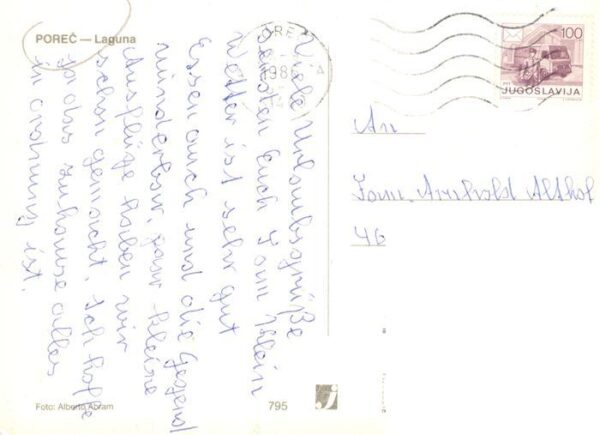 POREČ — Laguna
Viele Urlaubsgrüße
senden Euch Fam. Klein
Wetter ist sehr gut
Essen auch und die Gegend
wunderbar, paar kleine
Ausflüge haben wir
schon gemacht. Ich hoffe
das zuhause alles
in ordnung ist.
Foto: Alberto Abram
795
100
JUGOSLAVIJA
An
Fam. Althof
46